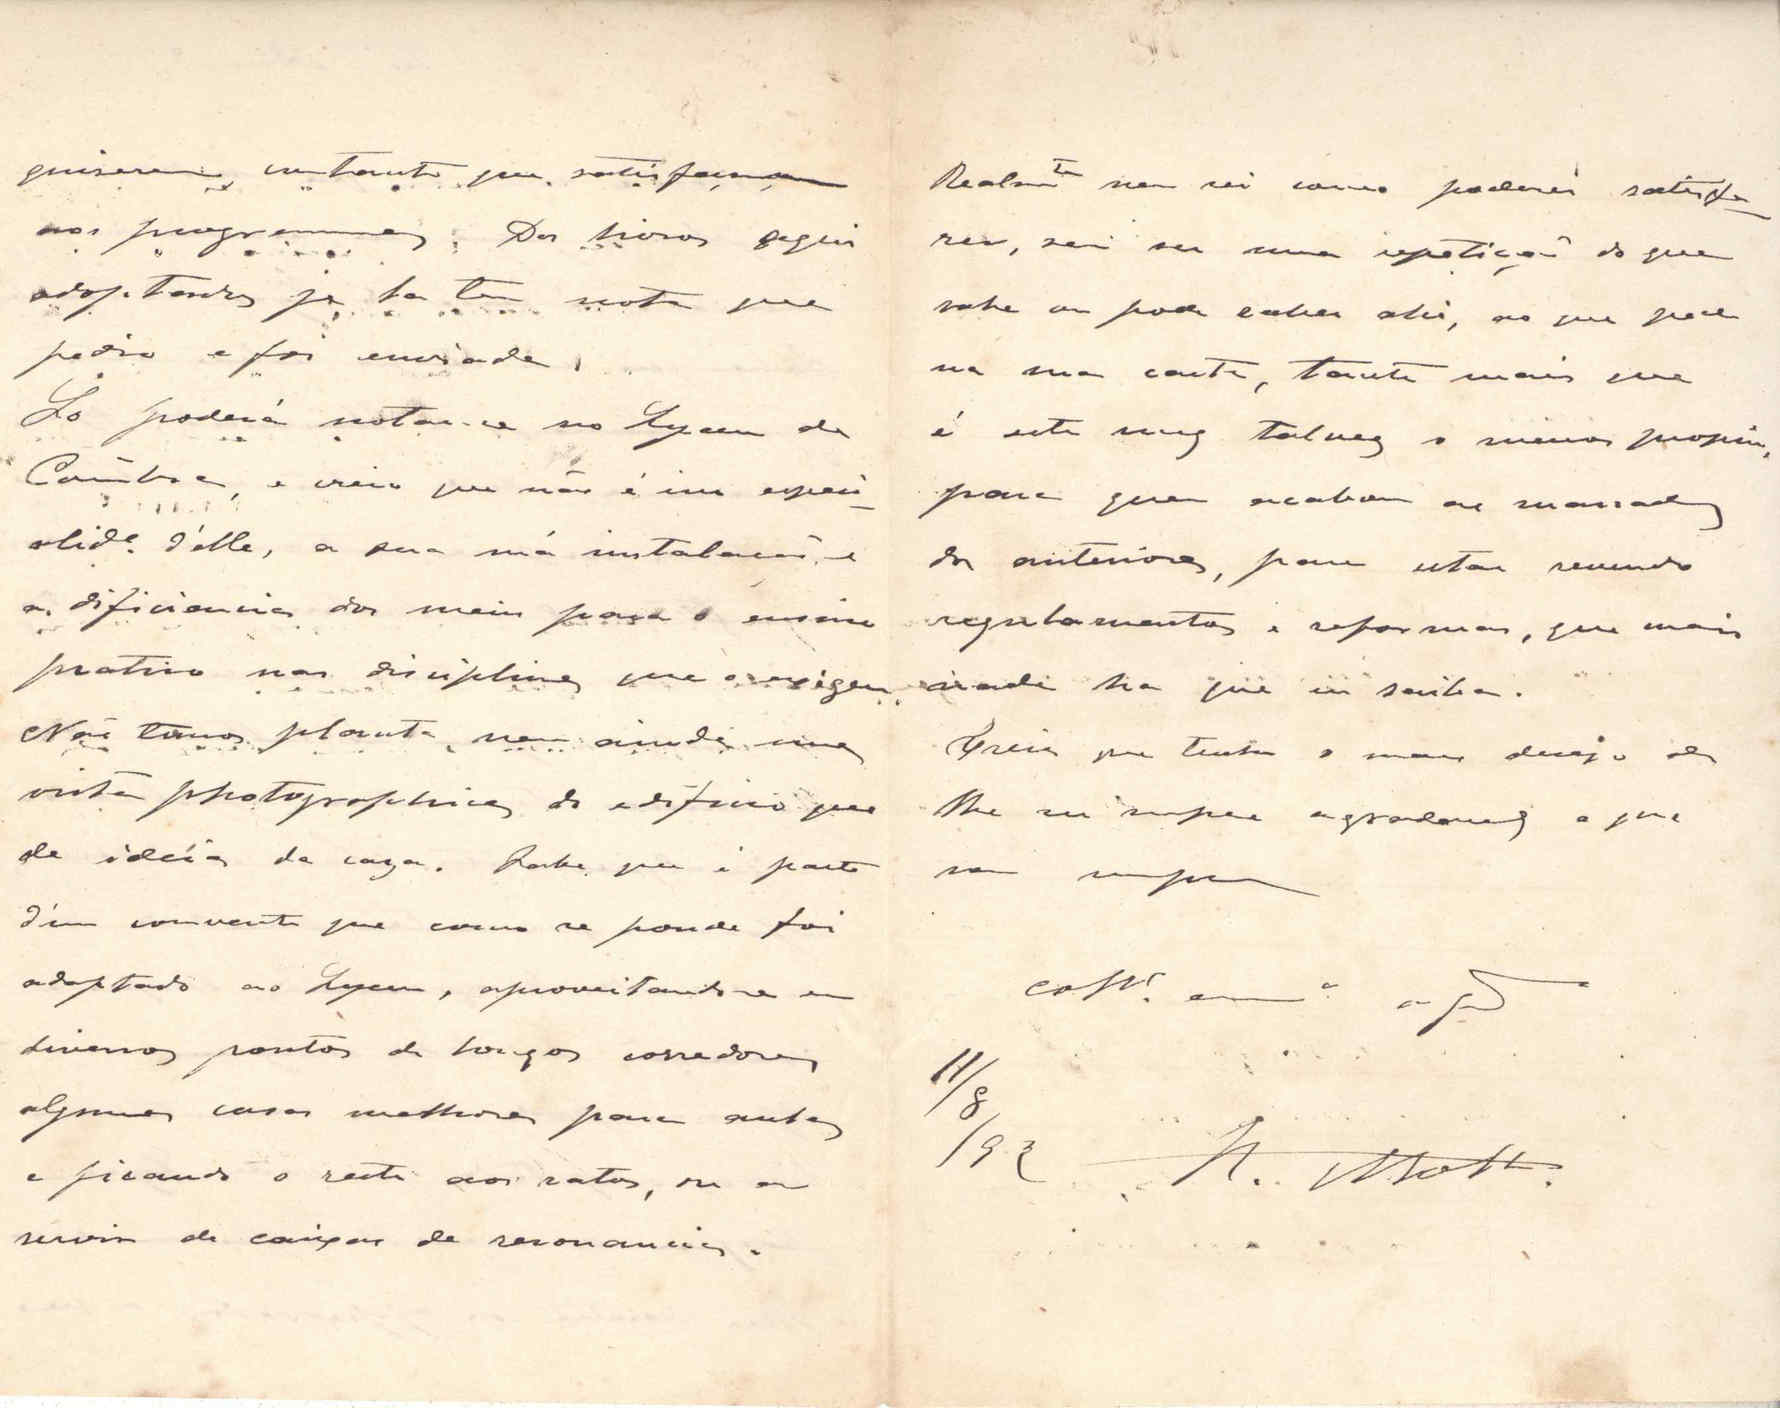 quiserem, comtanto que satisfaçam
aos programmas. Dos livros aqui
adoptados já la tem nota que
pedio e foi enviada.
Só poderá notar-se no Lyceu de
Coimbra, e creio que não é im especi-
alide. d'elle, a sua má instalacão e
a dificiencia dos meios para o ensino
pratico nas disciplinas que o exigem.
Não temos planta, nem ainda uma
vista photographica do edificio que
dê idéia da caza. Sabe que é parte
d'um convento que como se poude foi
adaptado ao Lyceu, aproveitando-se em
diversos pontos de longos corredores
algumas casas melhores para aulas
e ficando o resto aos ratos, ou a
servir de caixas de resonancia.
Realmte nem sei como poderei satisfa-
zer, sem ser uma repetição do que
sabe ou pode saber ahi, ao que pede
na sua carta, tanto mais que
é este mez talvez o menos proprio,
para quem acabou as massadas
dos anteriores, para estar revendo
regulamentos e reformas, que mais
nada ha que eu saiba.
Creia que tenho o maior desejo de
lhe ser sempre agradavel e que
sou sempre
coll. am.o
11/8
/92
Motta